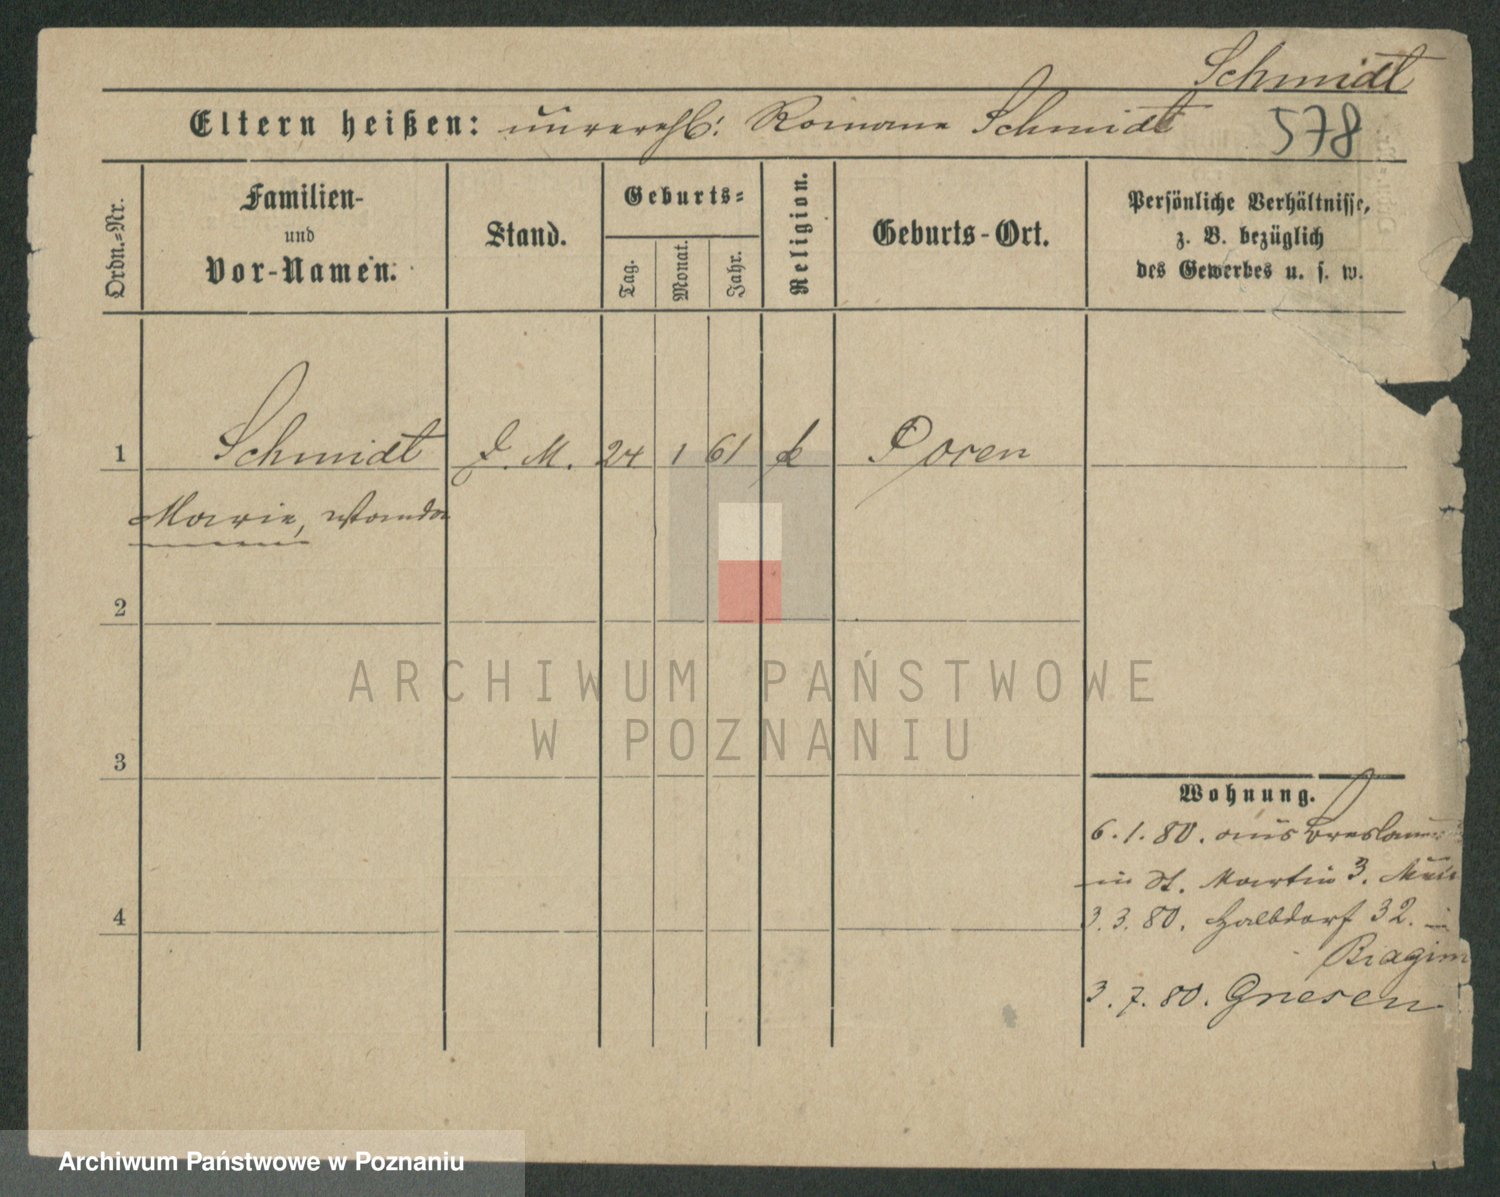 Schmidt
Eltern heißen: unverehl: Romana Schmidt 578
Ordn.-Nr.
Familien-
und
Vor-Namen.
Stand.
Geburts-
Tag.
Monat.
Jahr.
Religion.
Geburts-Ort.
Persönliche Verhältnisse,
z. B. bezüglich
des Gewerbes u. s. w.
1 Schmidt D. M. 24 1 61 k Posen
Marie, Wanda
2
3
4
Wohnung.
6.1.80. aus Breslauer
in St. Martin 3.
3.3.80. Halbdorf 32.
3.7.80. Gnesen
ARCHIWUM PAŃSTWOWE
W POZNANIU
Archiwum Państwowe w Poznaniu